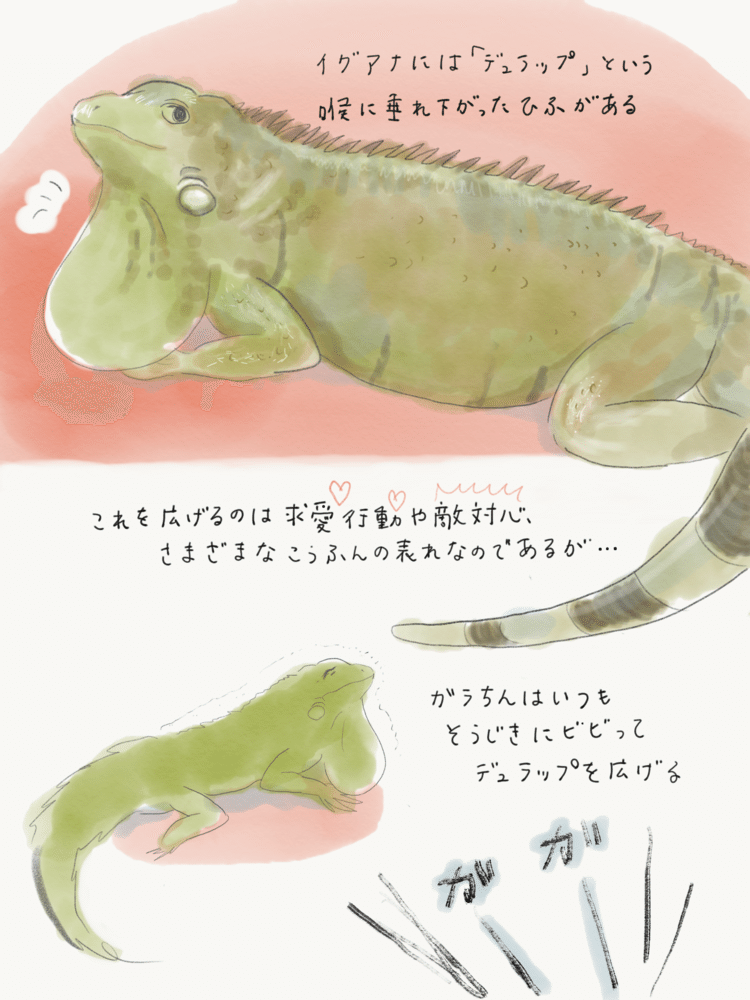 イグアナには「デュラップ」という
喉に垂れ下がったひふがある
これを広げるのは求愛行動や敵対心、
さまざまなこうふんの表れなのであるが…
ガラちんはいつも
そうじきにビビって
デュラップを広げる
ガガ